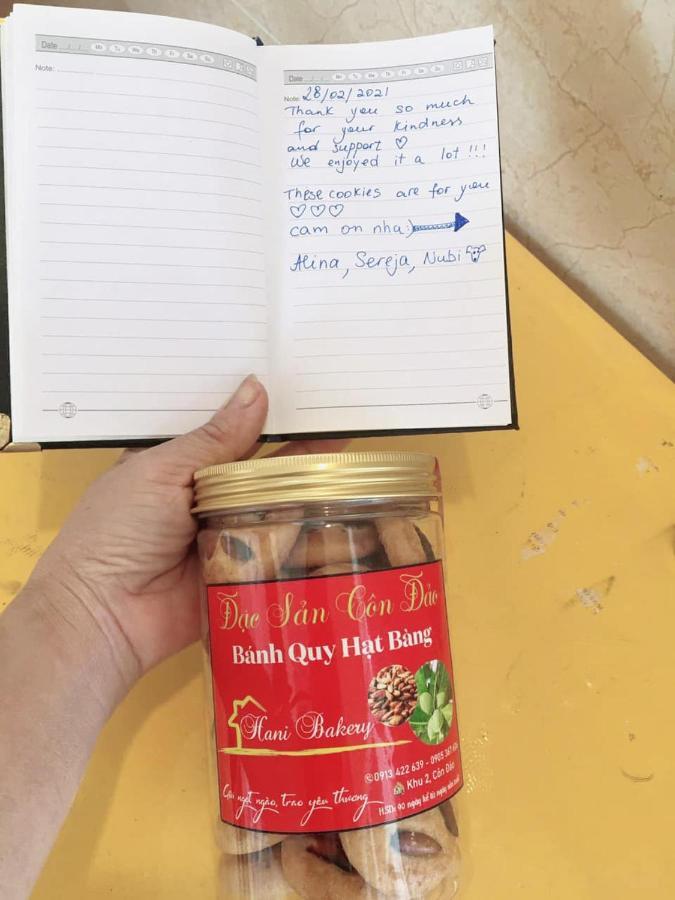 Date
Mo Tu We Th Fr Sa Su
Note:
Date
Mo Tu We Th Fr Sa Su
Note: 28/02/2021
Thank you so much
for your kindness
and support ♡
We enjoyed it a lot !!!
These cookies are for you
♡♡♡
cam on nha:)
Alina, Sereja, Nubi
Đặc Sản Côn Đảo
Bánh Quy Hạt Bàng
Hani Bakery
0913 422 639 - 0905 367
Khu 2, Côn Đảo
Gửi ngọt ngào, trao yêu thương
HSD: 90 ngày kể từ ngày sản xuất